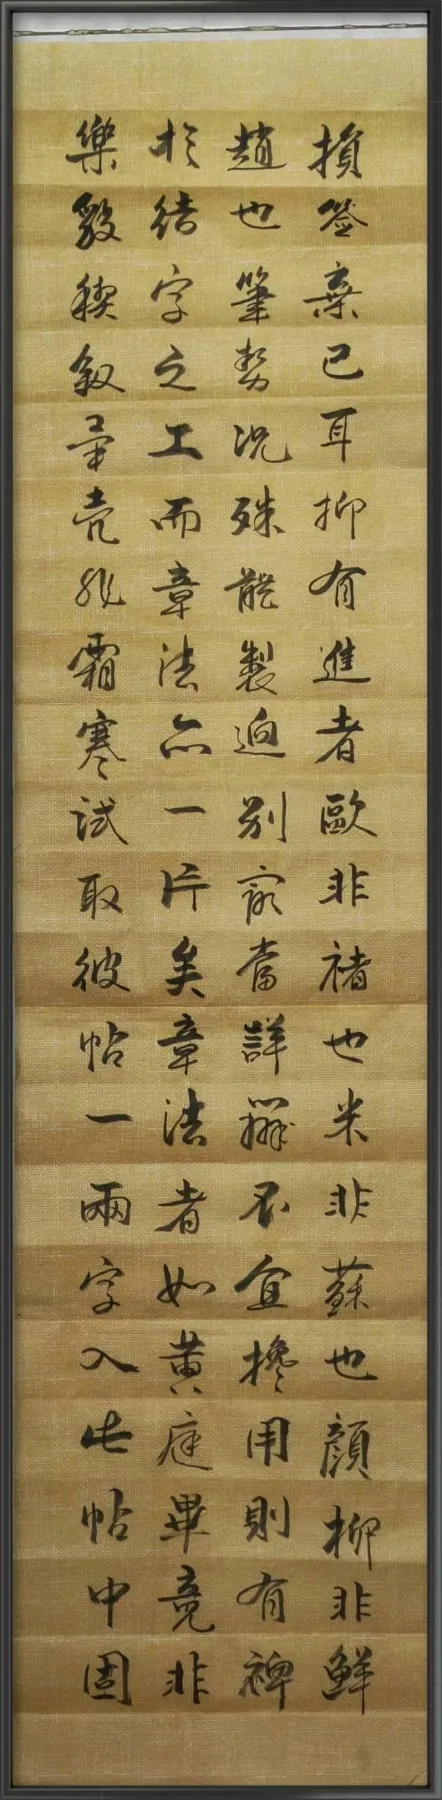 損益棄已耳抑有進者歐非褚也米非蘇也顏柳非鮮
趙也筆勢況殊體製迥別最當詳辨不宜攙用則有裨
於結字之工而章法亦一片矣章法者如黃庭畢竟非
樂毅稧敘畢竟非霜寒試取彼帖一兩字入此帖中固